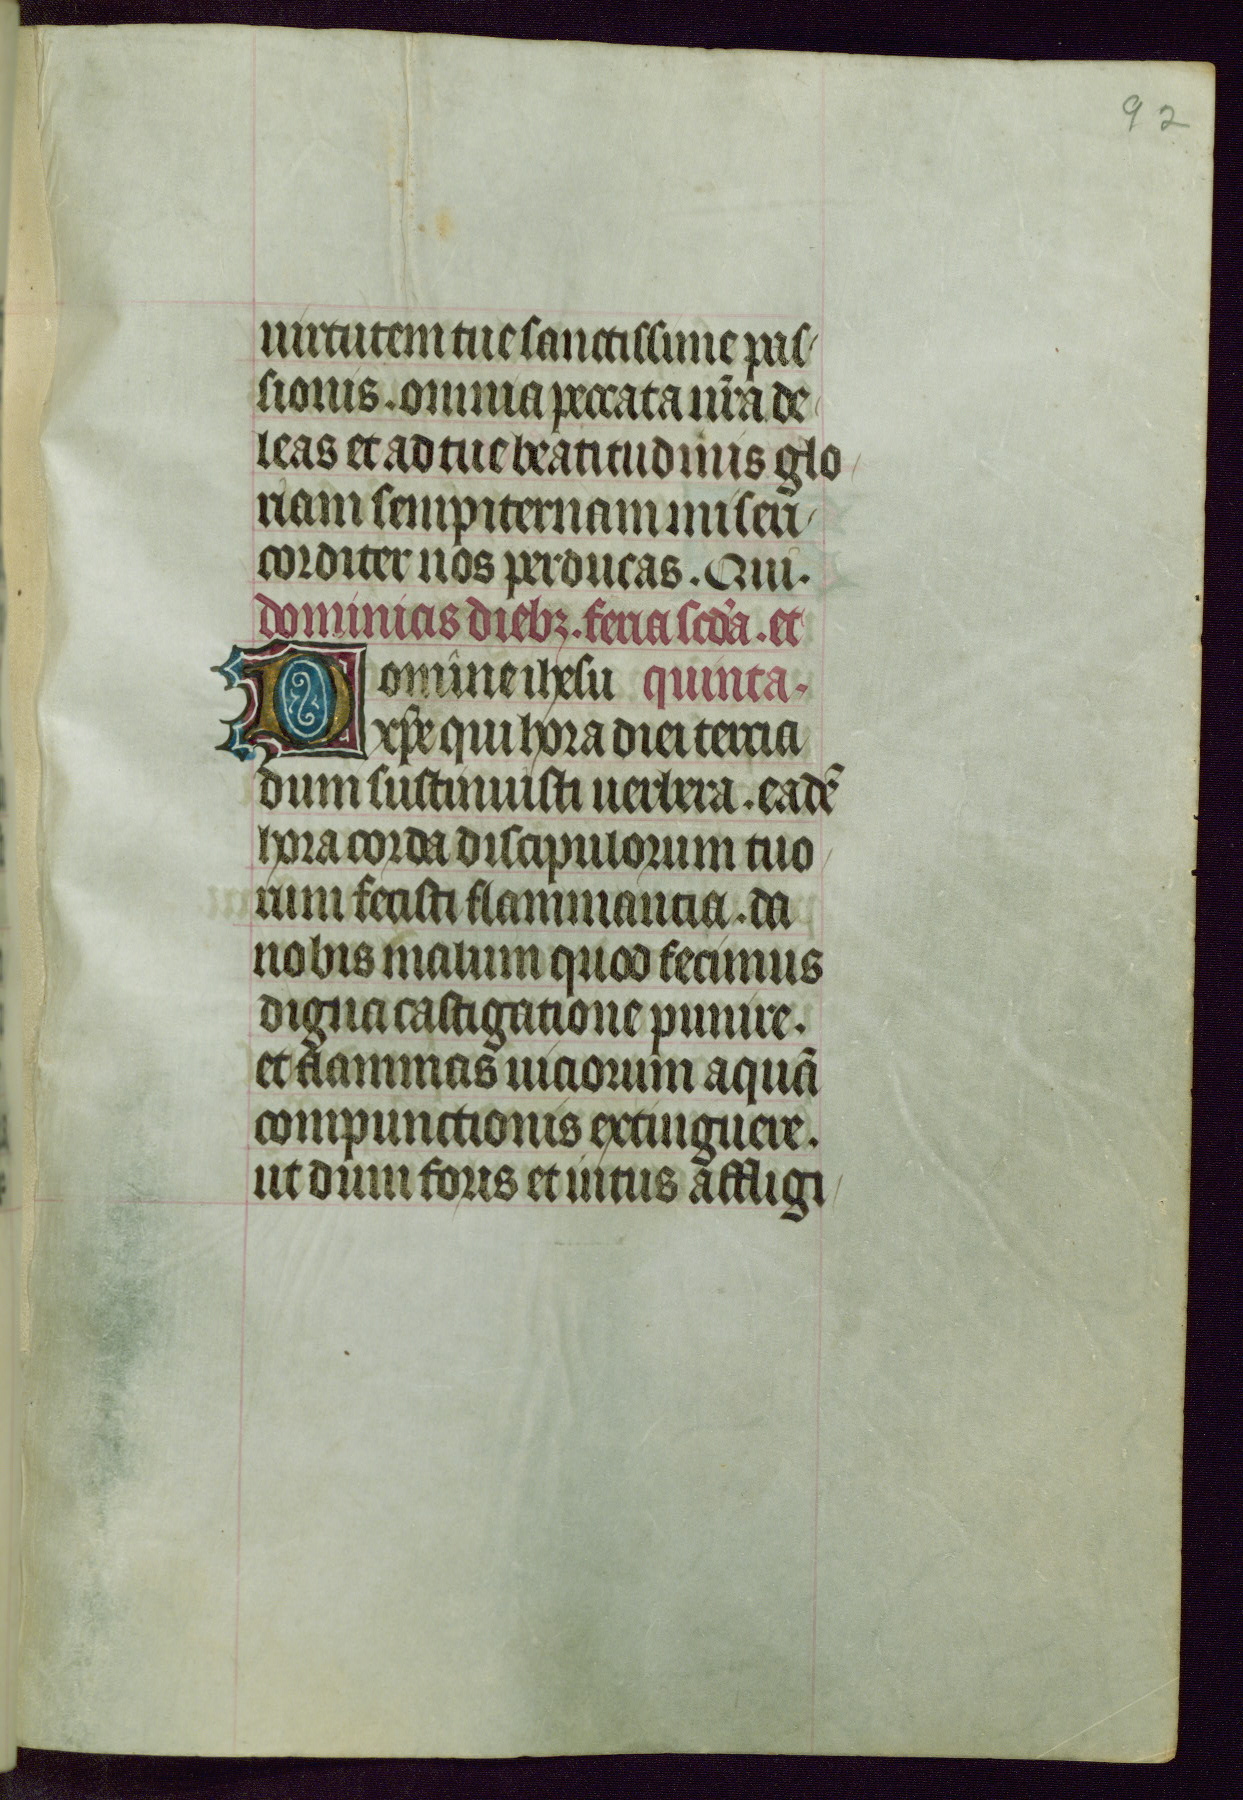 92
uirtutem tue sanctissime pas
sionis. omnia peccata nr̄a de
leas et ad tue beatitudinis glo
riam sempiternam miserī
corditer nos perducas. Qui.
dominicis diebꝫ. feria scd̄a. et
Domine ihesu quinta.
xp̄e qui hora diei tercia
dum sustinuisti uerbera. eadē
hora corda discipulorum tuo
rum fecisti flammantia. da
nobis malum quod fecimus
digna castigatione punire.
et flammas uiciorum aqua
compunctionis extinguere.
ut dum foris et intus affligi